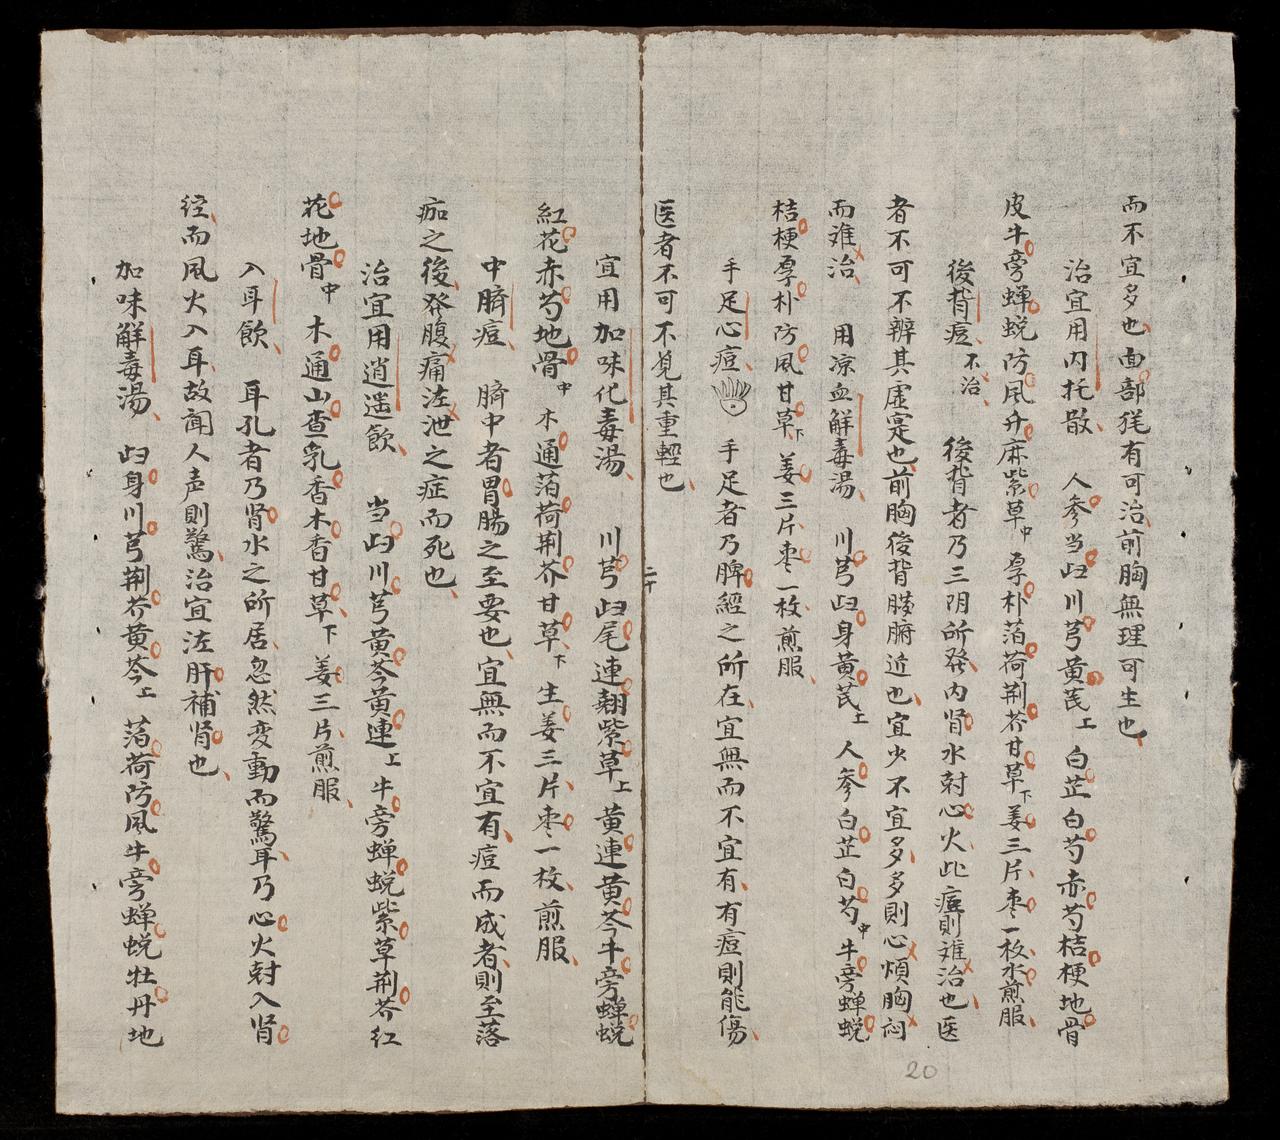 而不宜多也面部㲦有可治前胸無理可生也
治宜用内托散　人参当归川芎黄芪上　白芷白芍赤芍桔梗地骨
皮牛旁蝉蜕防风升麻紫草中　厚朴萡荷荆芥甘草下姜三片枣一枚水煎服
後背痘不治　後背者乃三阴所發内肾水尅心火此痘則难治也医
者不可不辨其虚寔也前胸後背臟腑近也宜少不宜多多則心煩胸闷
而难治　用凉血解毒湯　川芎归身黄芪上　人參白芷白芍中　牛旁蝉蜕
桔梗厚朴防风甘草下　姜三片枣一枚煎服
手足心痘　手足者乃脾經之所在宜無而不宜有有痘則能傷
医者不可不覓其重輕也
二十
宜用加味化毒湯　川芎归尾連翹紫草上　黄連黄芩牛旁蝉蜕
紅花赤芍地骨中　木通萡荷荆芥甘草下　生姜三片枣一枚煎服
中臍痘　臍中者胃腸之至要也宜無而不宜有痘而成者則至落
痂之後發腹痛泣泄之症而死也
治宜用逍遥飲　当归川芎黄芩黄連上　牛旁蝉蜕紫草荆芥红
花地骨中　木通山查乳香木香甘草下　姜三片煎服
入耳飲　耳孔者乃肾水之所居忽然变動而驚耳乃心火尅入肾
经而风火入耳故闻人声則驚治宜泣肝補肾也
加味解毒湯　归身川芎荆芥黄芩上　萡荷防风牛旁蝉蜕牡丹地
20